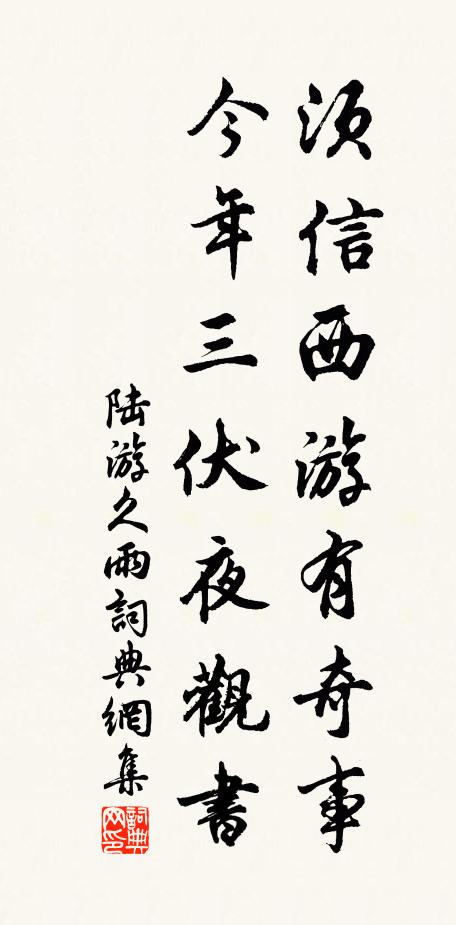 須信西游有奇事
今年三伏夜觀書
陆游久雨詞典網集
詞典网印